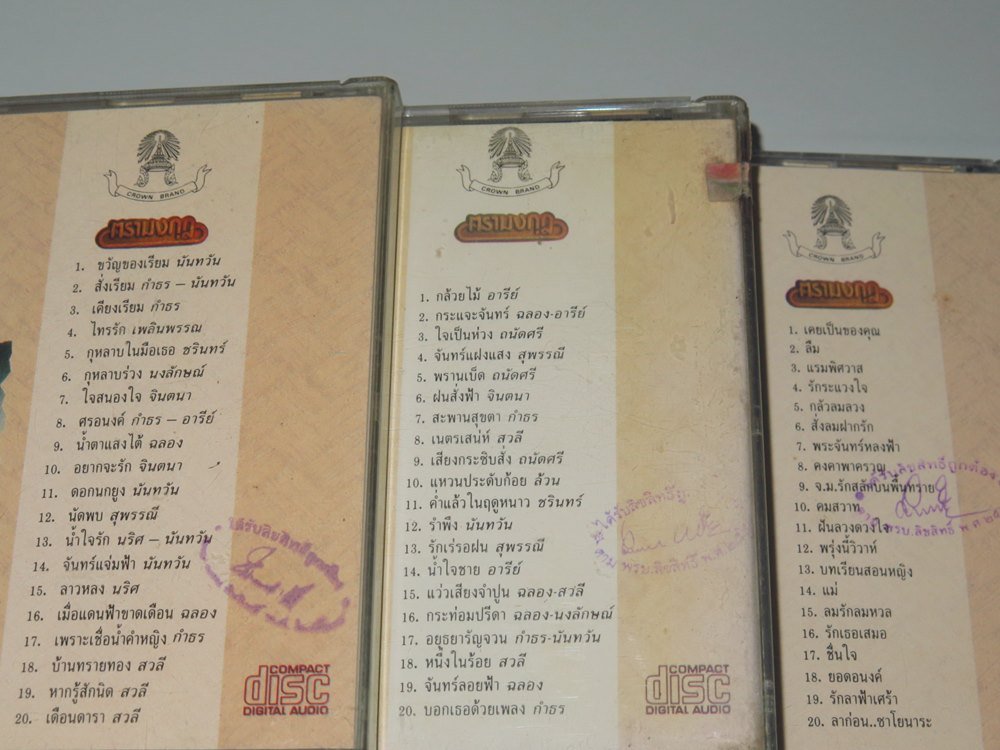 CROWN BRAND
ตรามงกุฎ
1. ขวัญของเรียม นันทวัน
2. สั่งเรียม กำธร – นันทวัน
3. เคียงเรียม กำธร
4. ไทรรัก เพลินพรรณ
5. กุหลาบในมือเธอ ชรินทร์
6. กุหลาบร่วง นงลักษณ์
7. ใจสนองใจ จินตนา
8. ศรอนงค์ กำธร – อารีย์
9. น้ำตาแสงใต้ ฉลอง
10. อยากจะรัก จินตนา
11. ดอกนกยูง นันทวัน
12. นัดพบ สุพรรณี
13. น้ำใจรัก นริศ – นันทวัน
14. จันทร์แจ่มฟ้า นันทวัน
15. ลาวหลง นริศ
16. เมื่อแดนฟ้าขาดเดือน ฉลอง
17. เพราะเชื่อน้ำคำหญิง กำธร
18. บ้านทรายทอง สวลี
19. หากรู้สักนิด สวลี
20. เดือนดารา สวลี
COMPACT
disc
DIGITAL AUDIO
CROWN BRAND
ตรามงกุฎ
1. กล้วยไม้ อารีย์
2. กระแจะจันทร์ ฉลอง-อารีย์
3. ใจเป็นห่วง ถนัดศรี
4. จันทร์แฝงแสง สุพรรณี
5. พรานเบ็ด ถนัดศรี
6. ฝนสั่งฟ้า จินตนา
7. สะพานสุขตา กำธร
8. เนตรเสน่ห์ สวลี
9. เสียงกระซิบสั่ง ถนัดศรี
10. แหวนประดับก้อย ล้วน
11. ค่ำแล้วในฤดูหนาว ชรินทร์
12. รำพึง นันทวัน
13. รักเร่รอฝน สุพรรณี
14. น้ำใจชาย อารีย์
15. แว่วเสียงจำปูน ฉลอง-สวลี
16. กระท่อมปรีดา ฉลอง-นงลักษณ์
17. อยุธยารัญจวน กำธร-นันทวัน
18. หนึ่งในร้อย สวลี
19. จันทร์ลอยฟ้า ฉลอง
20. บอกเธอด้วยเพลง กำธร
COMPACT
disc
DIGITAL AUDIO
CROWN BRAND
ตรามงกุฎ
1. เคยเป็นของคุณ
2. ลืม
3. แรมพิศวาส
4. รักระแวงใจ
5. กลัวลมลวง
6. สั่งลมฝากรัก
7. พระจันทร์หลงฟ้า
8. คงคาพาครวญ
9. จ.ม.รักสลักบนพื้นทราย
10. คมสวาท
11. ฝันลวงดวงใจ
12. พรุ่งนี้วิวาห์
13. บทเรียนสอนหญิง
14. แม่
15. ลมรักลมหวล
16. รักเธอเสมอ
17. ชื่นใจ
18. ยอดอนงค์
19. รักลาฟ้าเศร้า
20. ลาก่อน..ซาโยนาระ